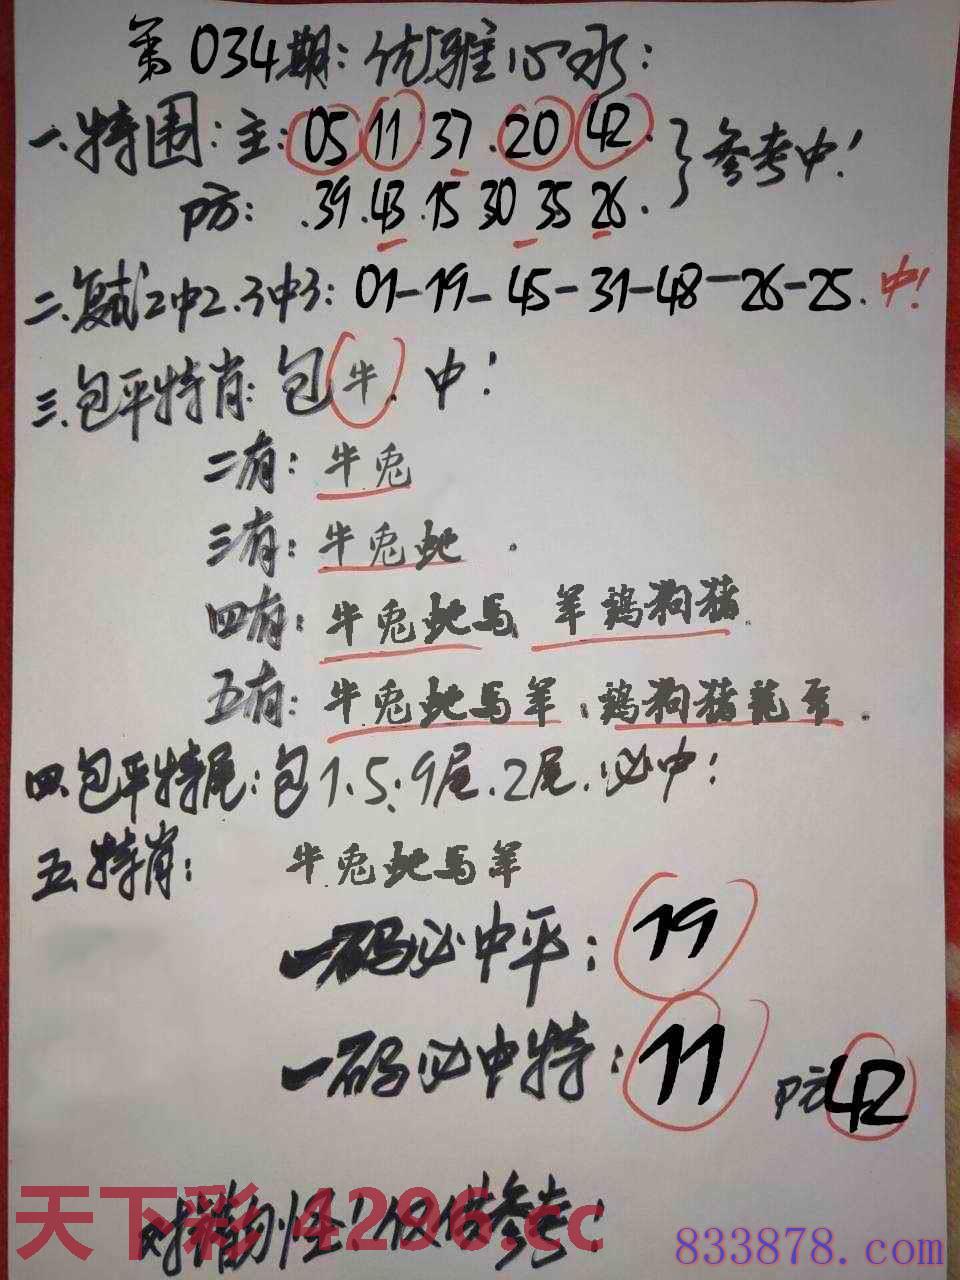 第034期:优雅心水:
一.特围:主:05 11 37.20 42.}参考中!
防:.39.43.15 30 35 26.
二.复式2中2.3中3:01-19-45-31-48-26-25.中!
三.包平特肖:包牛.中!
二有:牛兔
三有:牛兔蛇.
四有:牛兔蛇马 羊鸡狗猪.
五有:牛兔蛇马羊.鸡狗猪龙.
四.包平特尾:包1.5.9尾.2尾.必中!
五.特肖:牛兔蛇马羊
一码必中平:19
一码必中特:11 防42
对错勿怪!仅供参考!
天下彩 4296.cc
833878.com